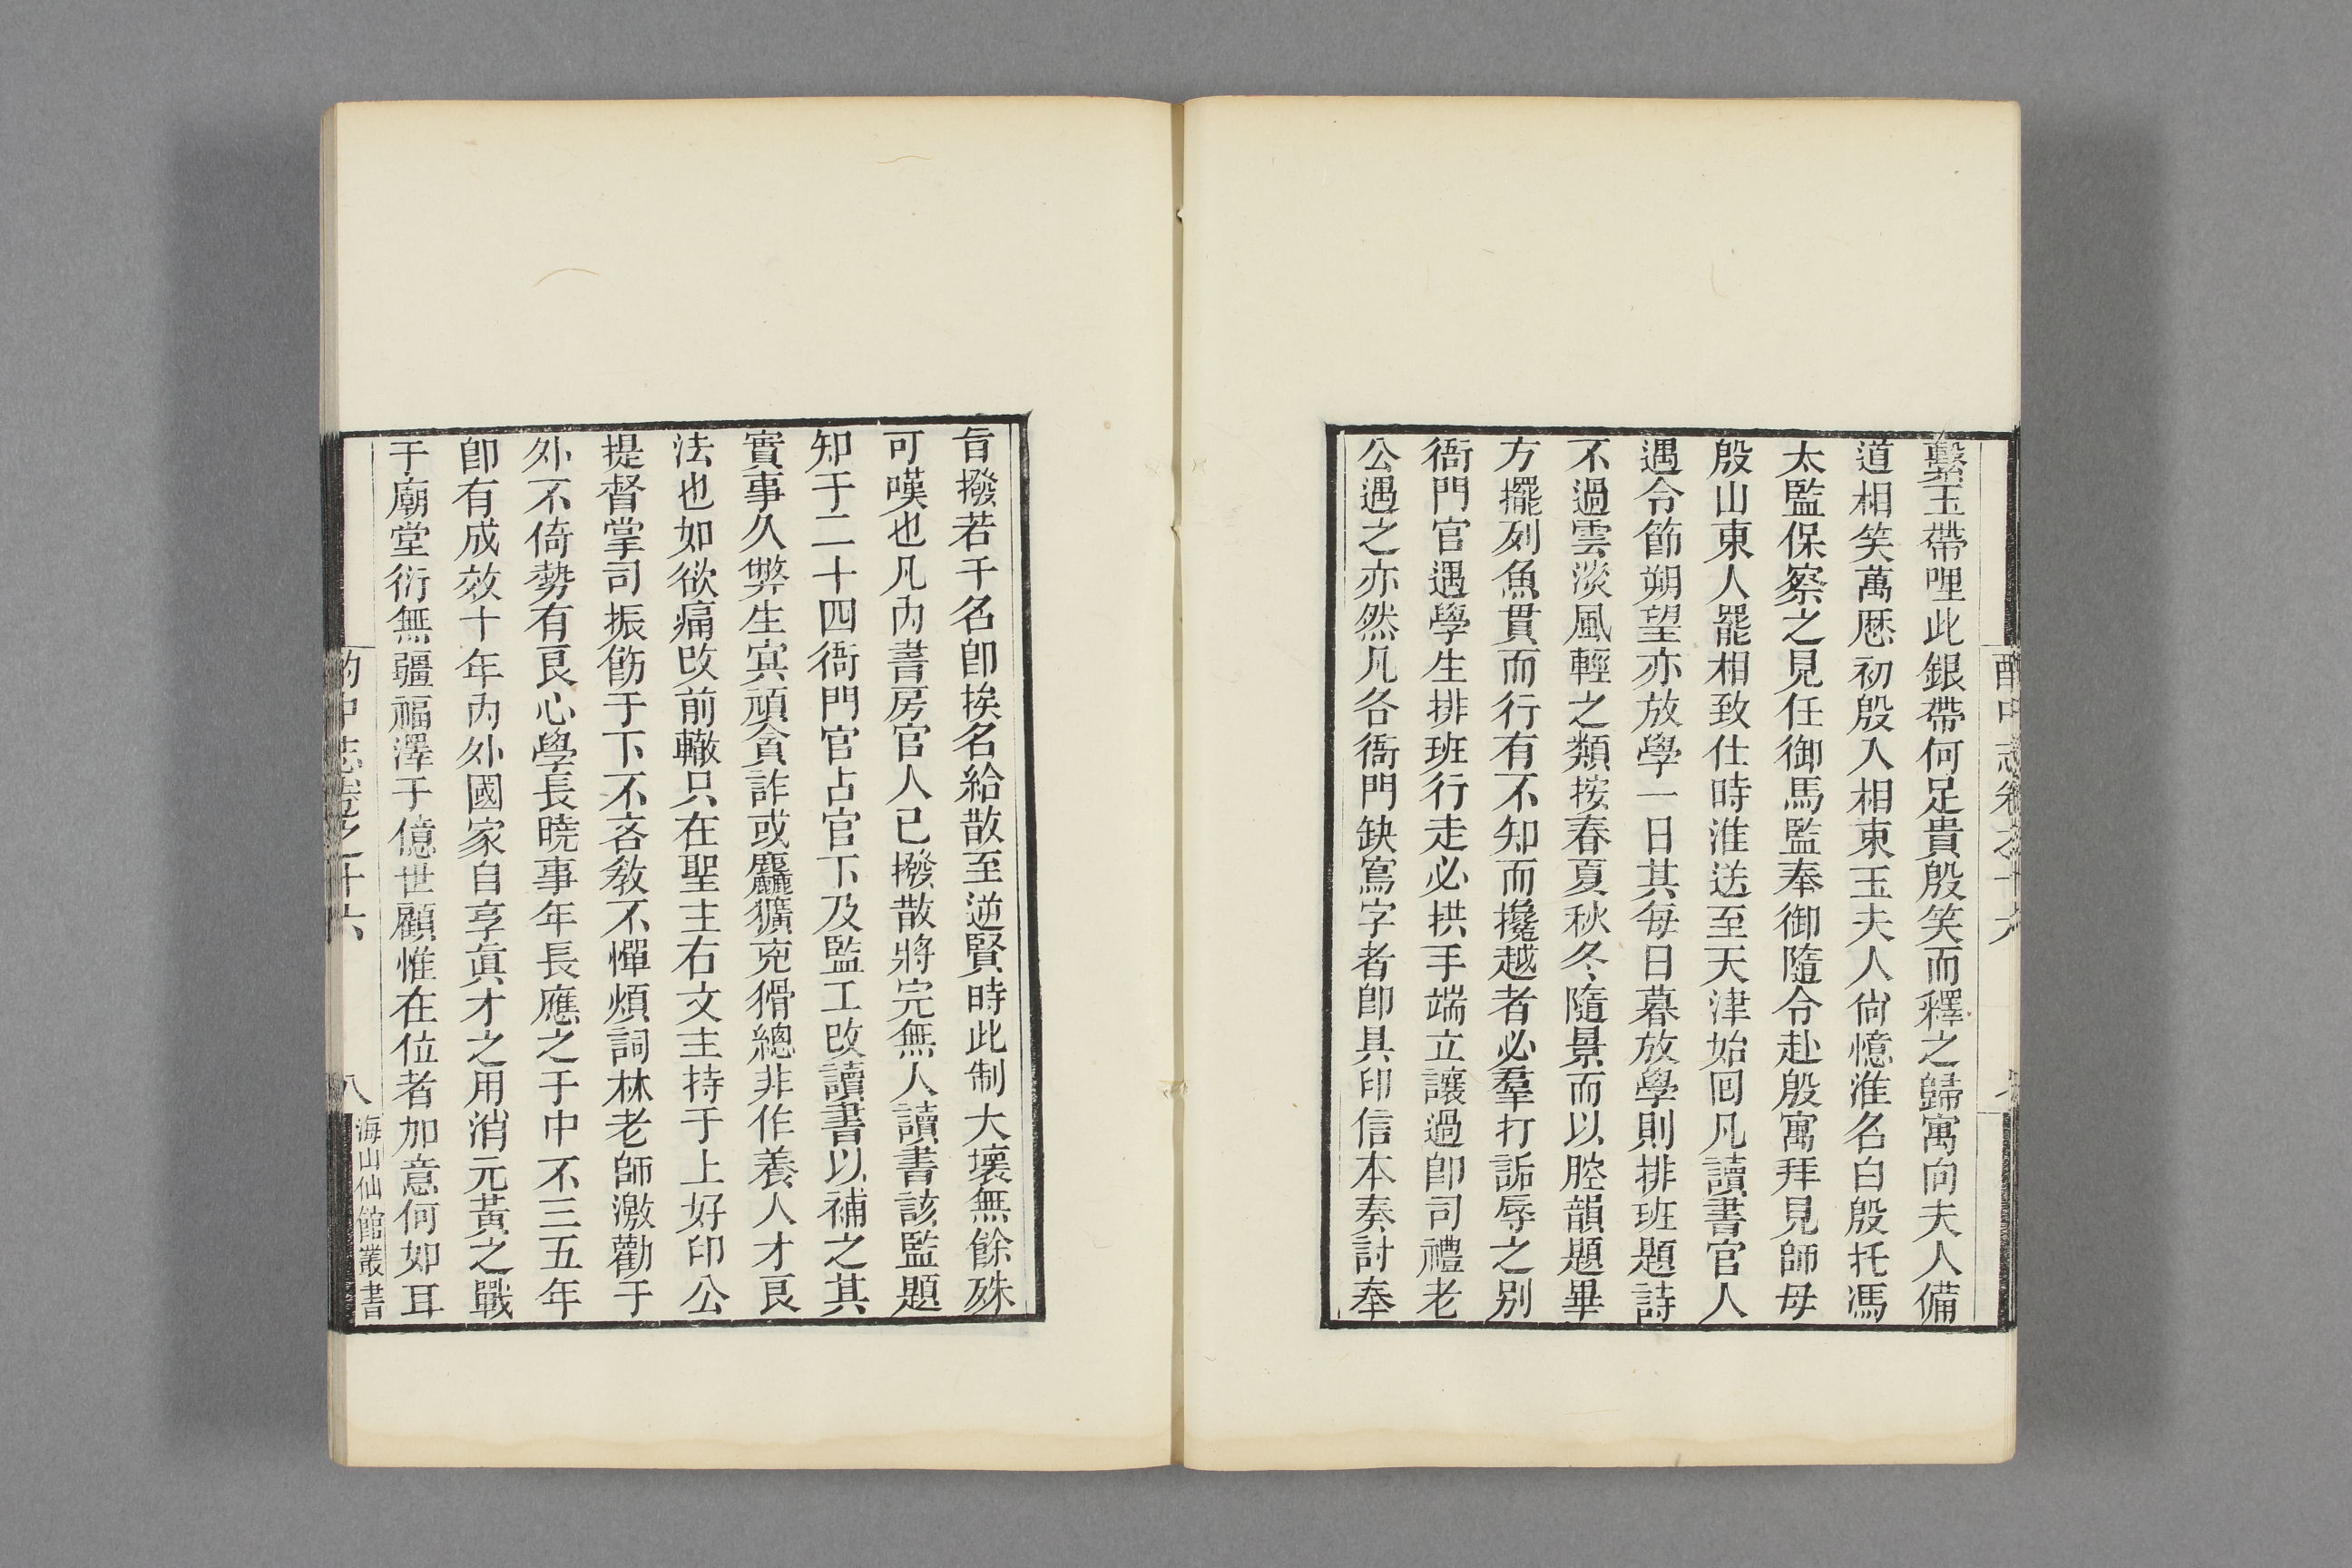 酌中志卷之十六
繫玉帶哩此銀帶何足貴殷笑而釋之歸寓向夫人備
道相笑萬厯初殷入相束玉夫人尙憶淮名白殷托馮
太監保察之見任御馬監奉御隨令赴殷寓拜見師母
殷山東人罷相致仕時淮送至天津始回凡讀書官人
遇令節朔望亦放學一日其每日暮放學則排班題詩
不過雲淡風輕之類按春夏秋冬隨景而以腔韻題畢
方擺列魚貫而行有不知而攙越者必羣打詬辱之别
衙門官遇學生排班行走必拱手端立讓過卽司禮老
公遇之亦然凡各衙門缺寫字者卽具印信本奏討奉
旨撥若干名卽挨名給散至逆賢時此制大壞無餘殊
可嘆也凡內書房官人已撥散將完無人讀書該監題
知于二十四衙門官占官下及監工改讀書以補之其
實事久弊生寅頑貪詐或麤獷兇猾總非作養人才良
法也如欲痛改前轍只在聖主右文主持于上好印公
提督掌司振飭于下不吝教不憚煩詞林老師激勸于
外不倚勢有良心學長曉事年長應之于中不三五年
卽有成效十年內外國家自享眞才之用消元黃之戰
于廟堂衍無疆福澤于億世顧惟在位者加意何如耳
酌中志卷之十六
八
海山仙館叢書